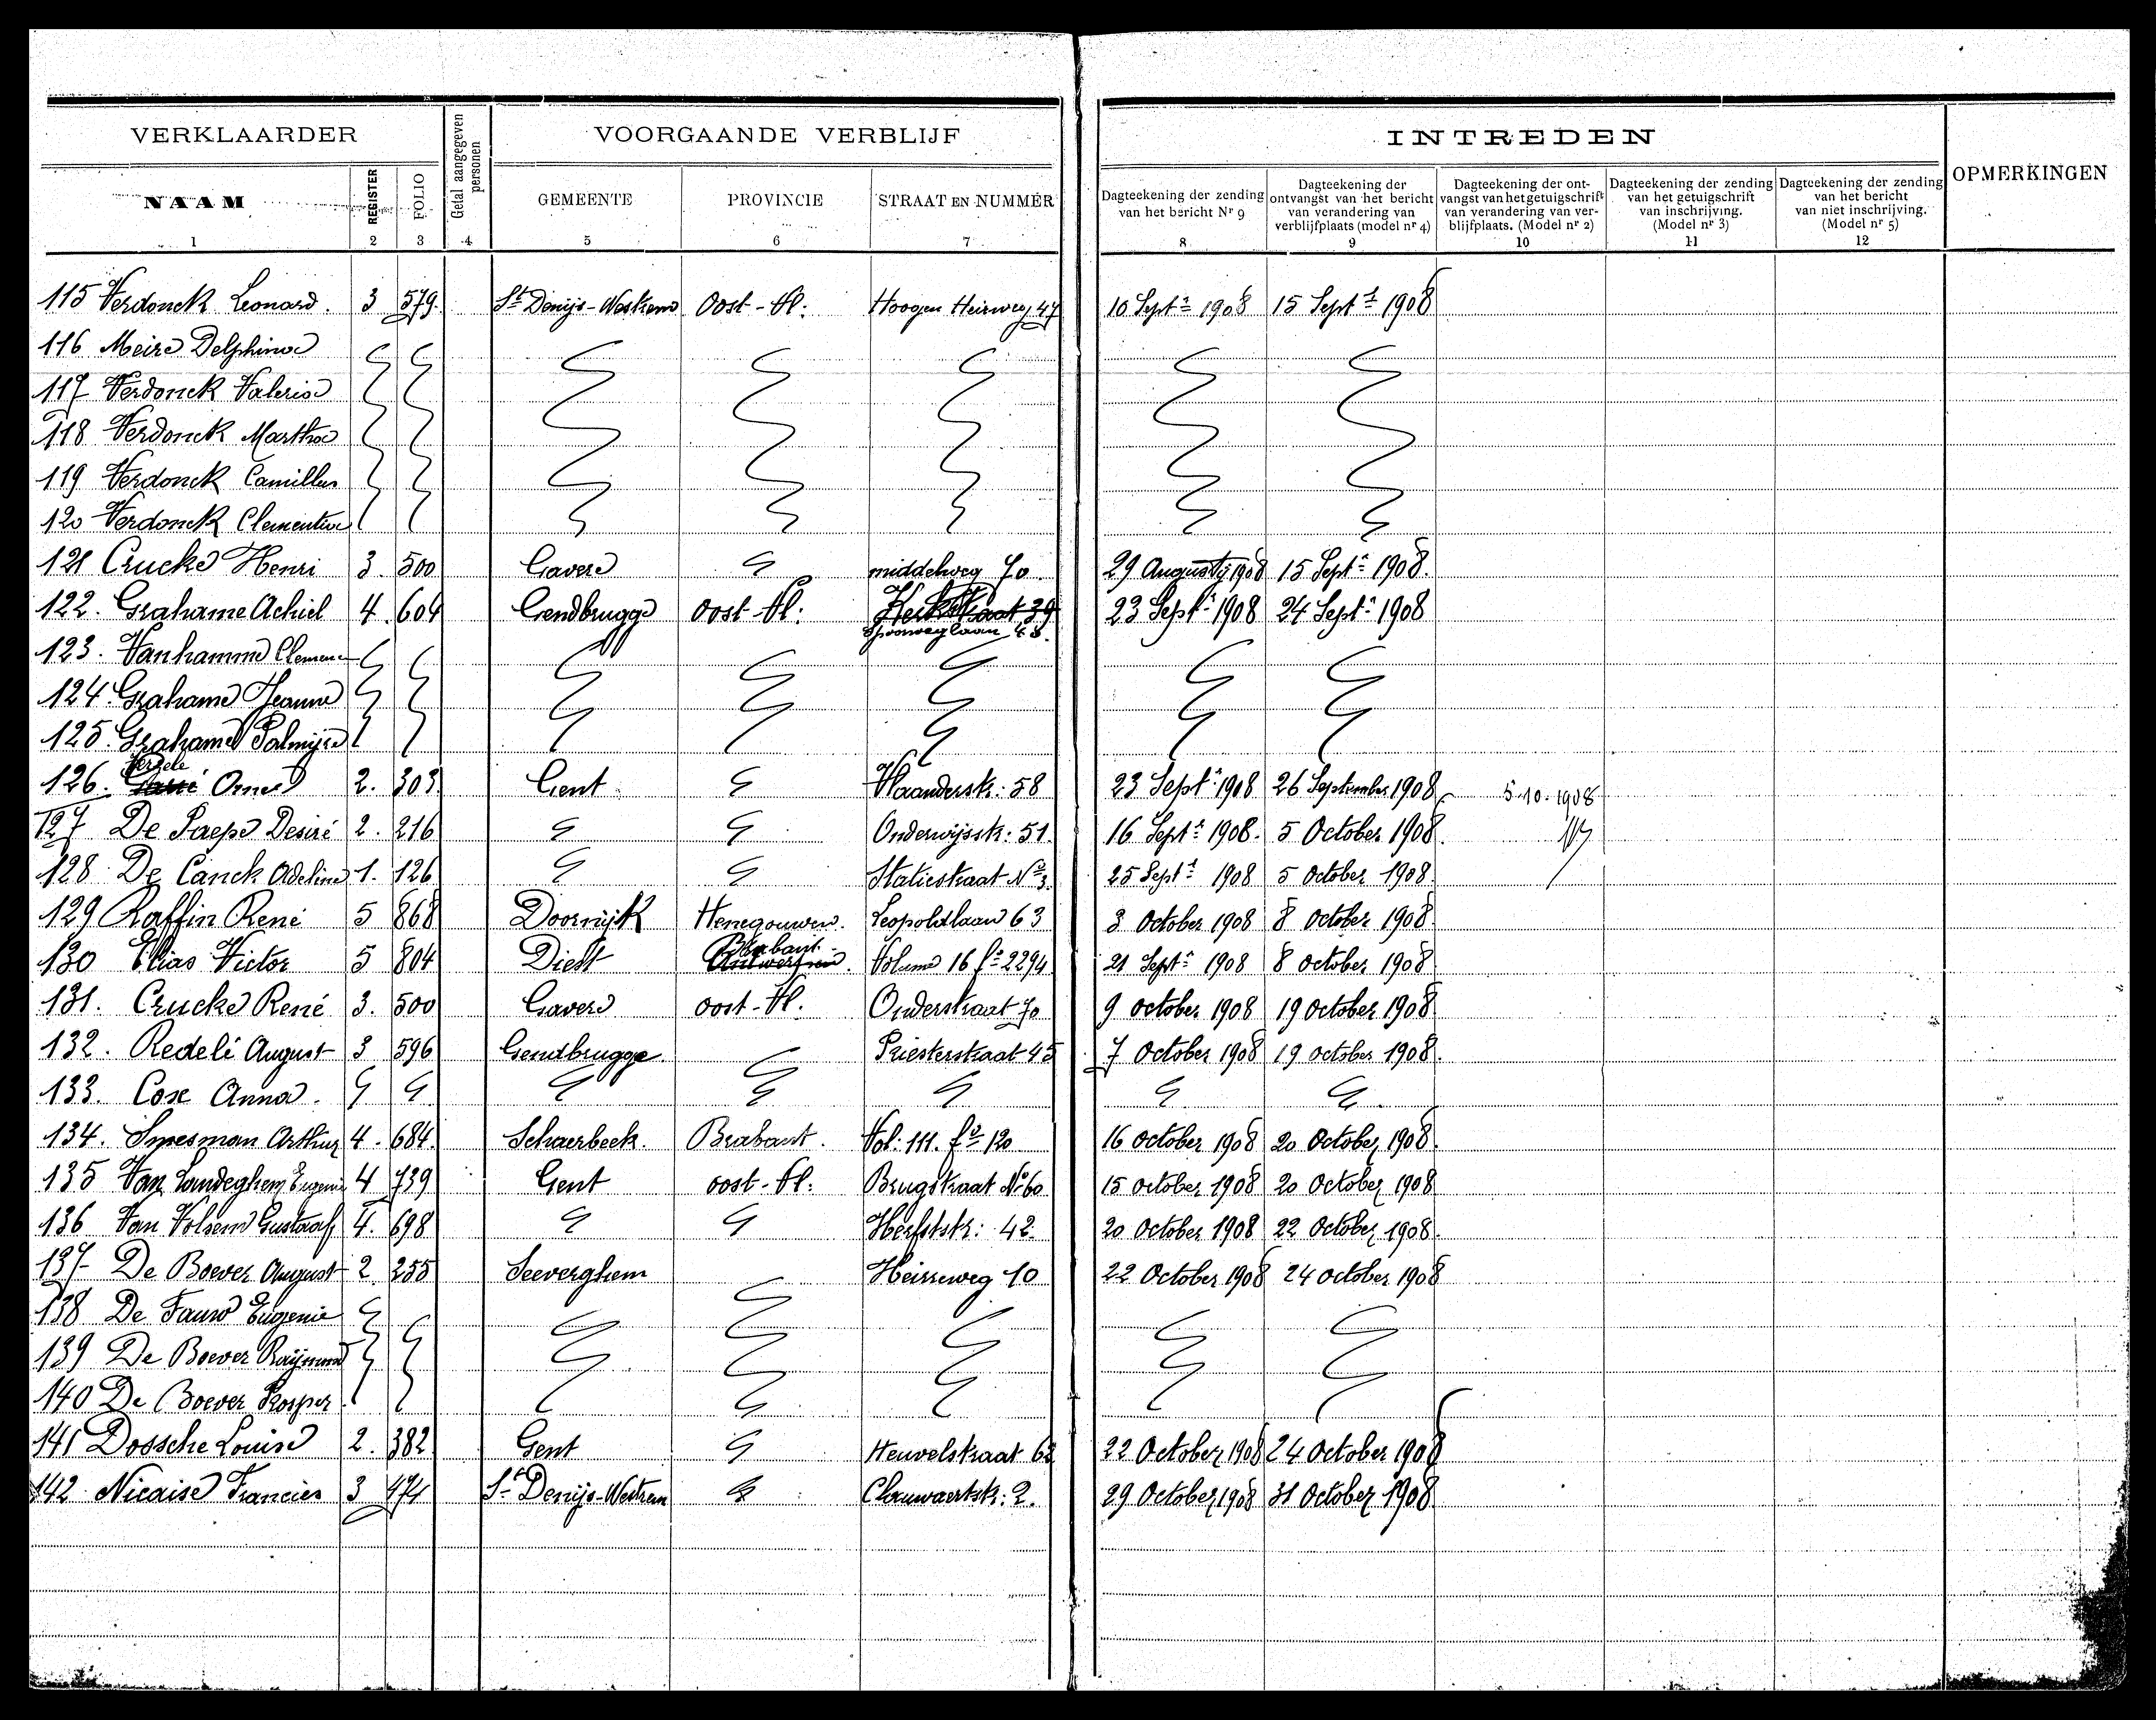 VERKLAARDER
Getal aangegeven personen
VOORGAANDE VERBLIJF
INTREDEN
OPMERKINGEN
NAAM
REGISTER
FOLIO
GEMEENTE
PROVINCIE
STRAAT EN NUMMER
Dagteekening der zending van het bericht Nr 9
Dagteekening der ontvangst van het bericht van verandering van verblijfplaats (model nr 4)
Dagteekening der ontvangst van het getuigschrift van verandering van verblijfplaats. (Model nr 2)
Dagteekening der zending van het getuigschrift van inschrijving. (Model nr 3)
Dagteekening der zending van het bericht van niet inschrijving. (Model nr 5)
1 2 3 4 5 6 7 8 9 10 11 12
115 Verdonck Leonard. 3 579. St Denijs-Westrem Oost-Vl: Hoogen Heirweg 47 10 Sept r 1908 15 Sept r 1908
116 Meire Delphina
117 Verdonck Valerie
118 Verdonck Martha
119 Verdonck Camillus
120 Verdonck Clementine
121 Crucke Henri 3. 500 Gavere middelweg 70. 29 Augusty 1908 15 Sept r 1908.
122. Grahame Achiel 4. 604 Gendbrugge Oost-Vl: 39 Spoorweglaan 48. 23 Sept r 1908 24 Sept r 1908
123. Vanhamme Clemence
124. Grahame Jeanne
125. Grahame Palmijre
126. Verzele Omer 2. 303 Gent Vlaanderstr: 58 23 Sept r 1908 26 September 1908 5-10-1908
127 De Paepe Desiré 2. 216 Onderwijsstr: 51. 16 Sept r 1908. 5 October 1908.
128 De Canck Odeline 1. 126 Statiestraat No 3. 25 Sept r 1908 5 October 1908.
129 Raffin René 5 868 Doornijk Henegouwen. Leopoldlaan 63 3 October 1908 8 October 1908.
130 Elias Victor 5 804 Diest Brabant Antwerpen. Volume 16 fo 2294 21 Sept r 1908 8 October 1908
131. Crucke René 3. 500 Gavere oost-Vl: Onderstraat 70 9 october 1908 19 October 1908
132. Redelé August 3 596 Gendbrugge. Priesterstraat 45 7 October 1908 19 October 1908.
133. Cose Anna.
134. Smesman Arthur 4. 684. Schaerbeek. Brabant. Vol: 111. fo 120 16 October 1908 20 October 1908.
135 Van Landeghem Eugenie 4 739 Gent oost-Vl: Brugstraat No 60 15 October 1908 20 October 1908
136 Van Volsem Gustaaf 4. 698 Herfststr: 42. 20 October 1908 22 October 1908.
137 De Boever August 2 255 Seeverghem Heirweg 10 22 October 1908 24 october 1908
138 De Fauw Eugenie
139 De Boever Raijmond
140 De Boever Prosper
141 Dossche Louise 2. 382 Gent Heuvelstraat 62 22 October 1908 24 October 1908
142 Nicaise Francies 3 474 St Denijs-Westrem Clauwaertstr: 2. 29 October 1908 31 October 1908